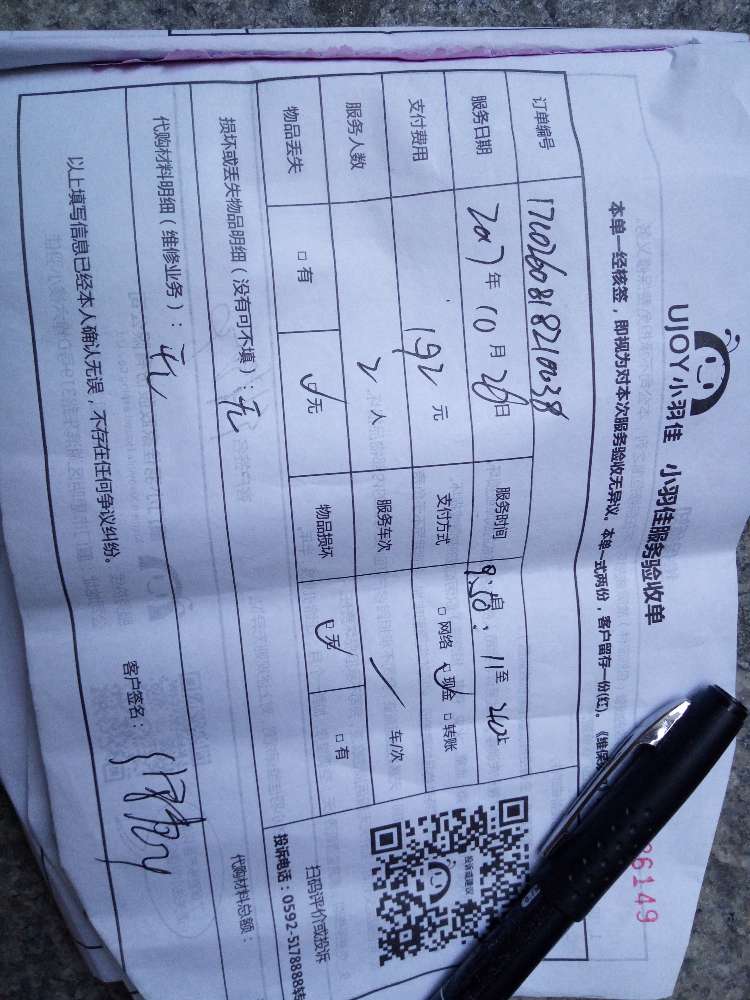 UJOY小羽佳 小羽佳服务验收单
本单一经核签,即视为对本次服务验收无异议。本单一式两份,客户留存一份(红)。《维保
6149
订单编号 1710260818210038
服务日期 2017年10月26日 服务时间 9:50 至 11:40止
支付费用 192元 支付方式 □网络 ☑现金 □转账
服务人数 2人 服务车次 / 车/次
物品丢失 □有 ☑无 物品损坏 ☑无 □有
损坏或丢失物品明细(没有可不填):无
代购材料明细(维修业务):无 代购材料总额:
以上填写信息已经本人确认无误,不存在任何争议纠纷。
客户签名:
投诉或建议
扫码评价或投诉
投诉电话:0592-5178888转